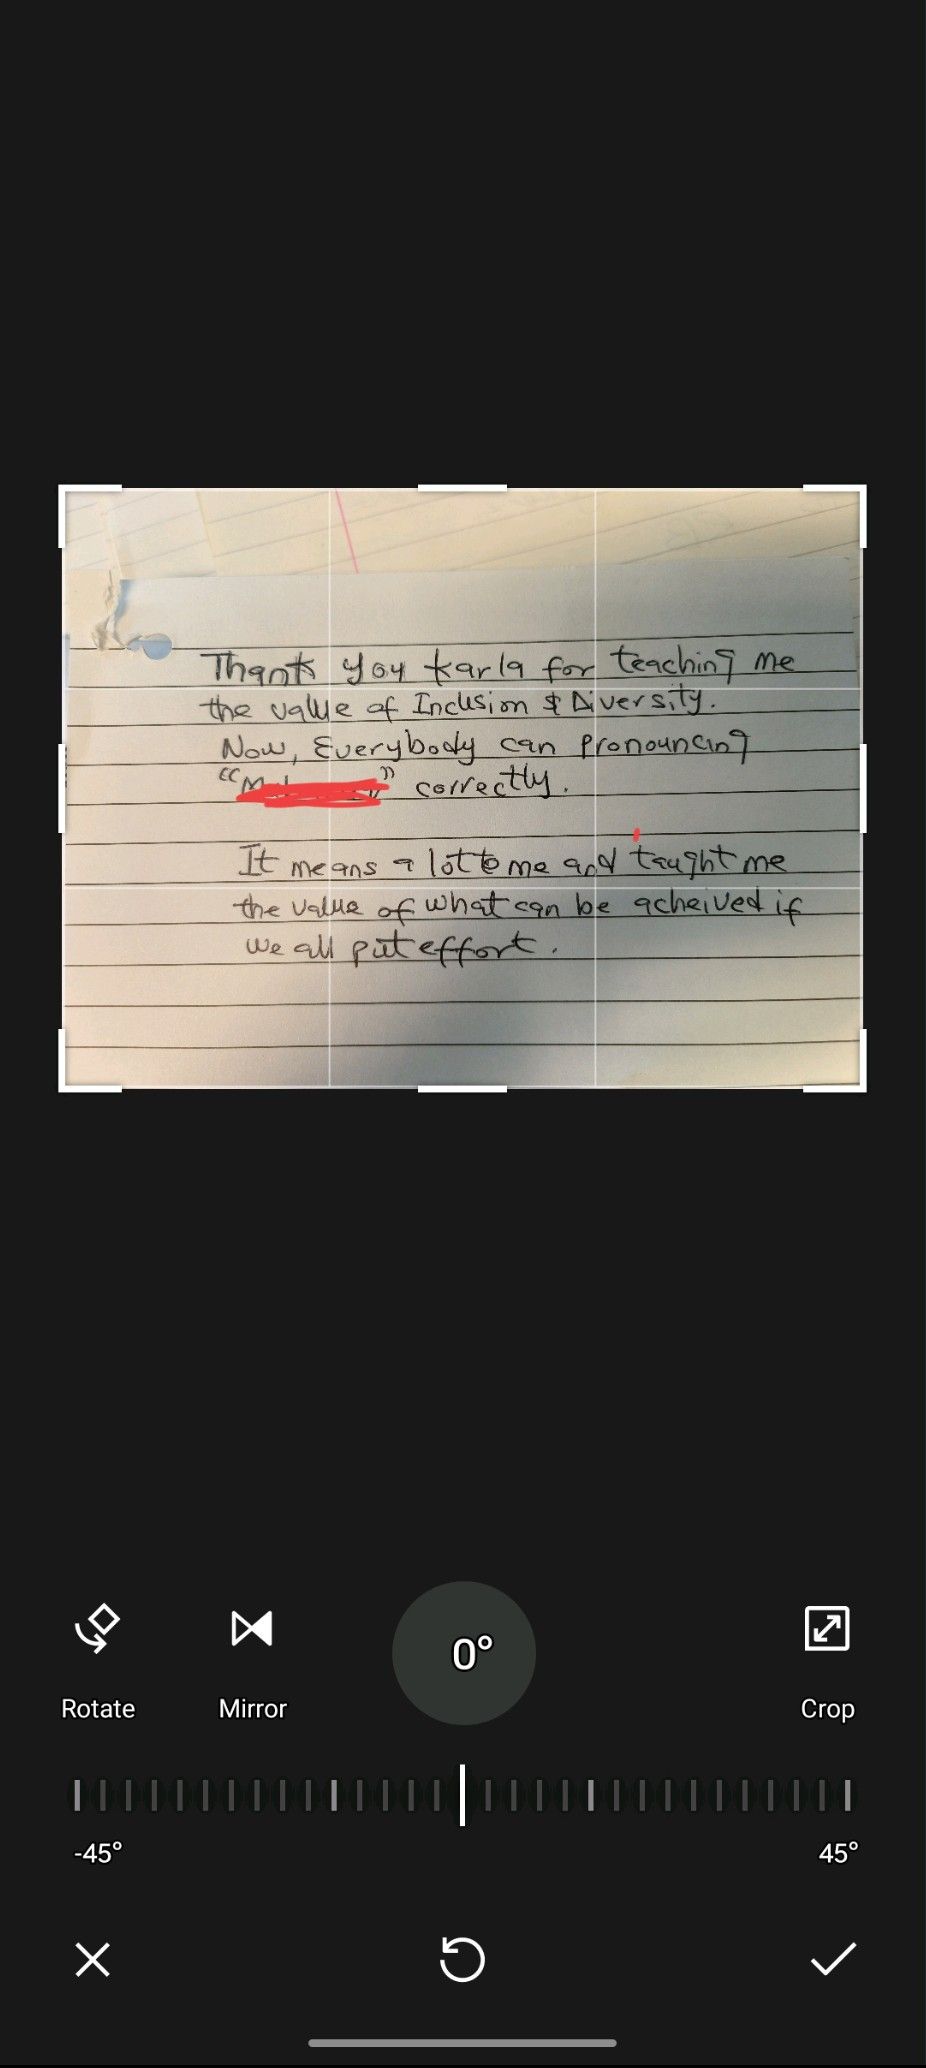 Thank you karla for teaching me
the value of Inclusion & Diversity.
Now, Everybody can pronouncing
" " correctly.
It means a lot to me and taught me
the value of what can be acheived if
we all put effort.
0°
Rotate Mirror Crop
-45° 45°